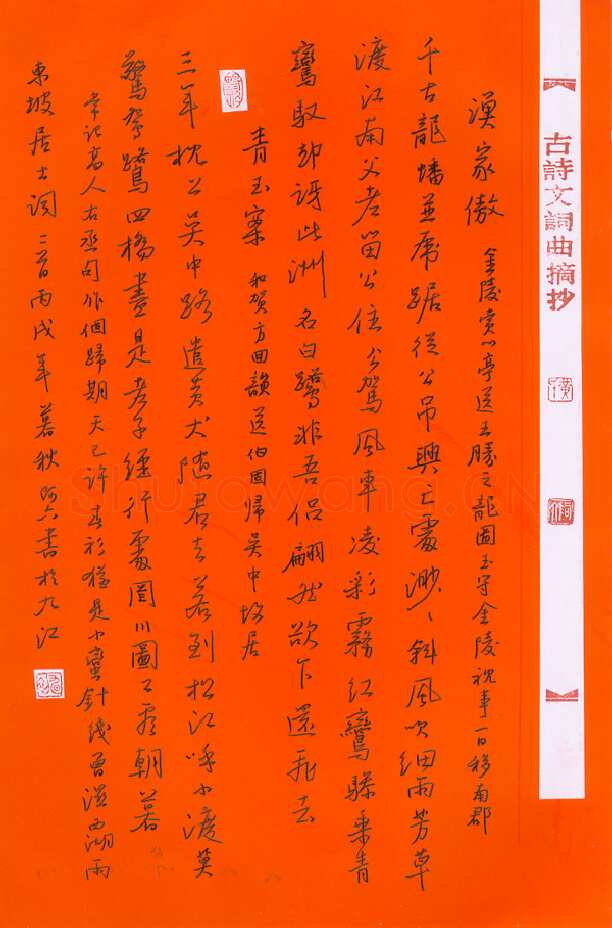 古詩文詞曲摘抄
漁家傲 金陵赏心亭送王勝之龍圖王守金陵視事一日移南郡
千古龍蟠並虎踞從公吊興亡處渺渺斜風吹细雨芳草
渡江南父老留公住公駕風車凌彩霧红鸞驂乘青
鸞馭却訝此洲名白鷺非吾侣翩然欲下還飛去
青玉案 和賀方回韻送伯固歸吴中故居
三年枕上吴中路遣黄犬随君去若到松江呼小渡莫
驚鴛鷺四橋盡是老子經行處罔川圖上看春暮
常記高人右丞句作個歸期天已許春衫猶是小蠻針线曾濕西湖雨
東坡居士词二首丙戌年暮秋阿六書於九江
Shufawang.CN